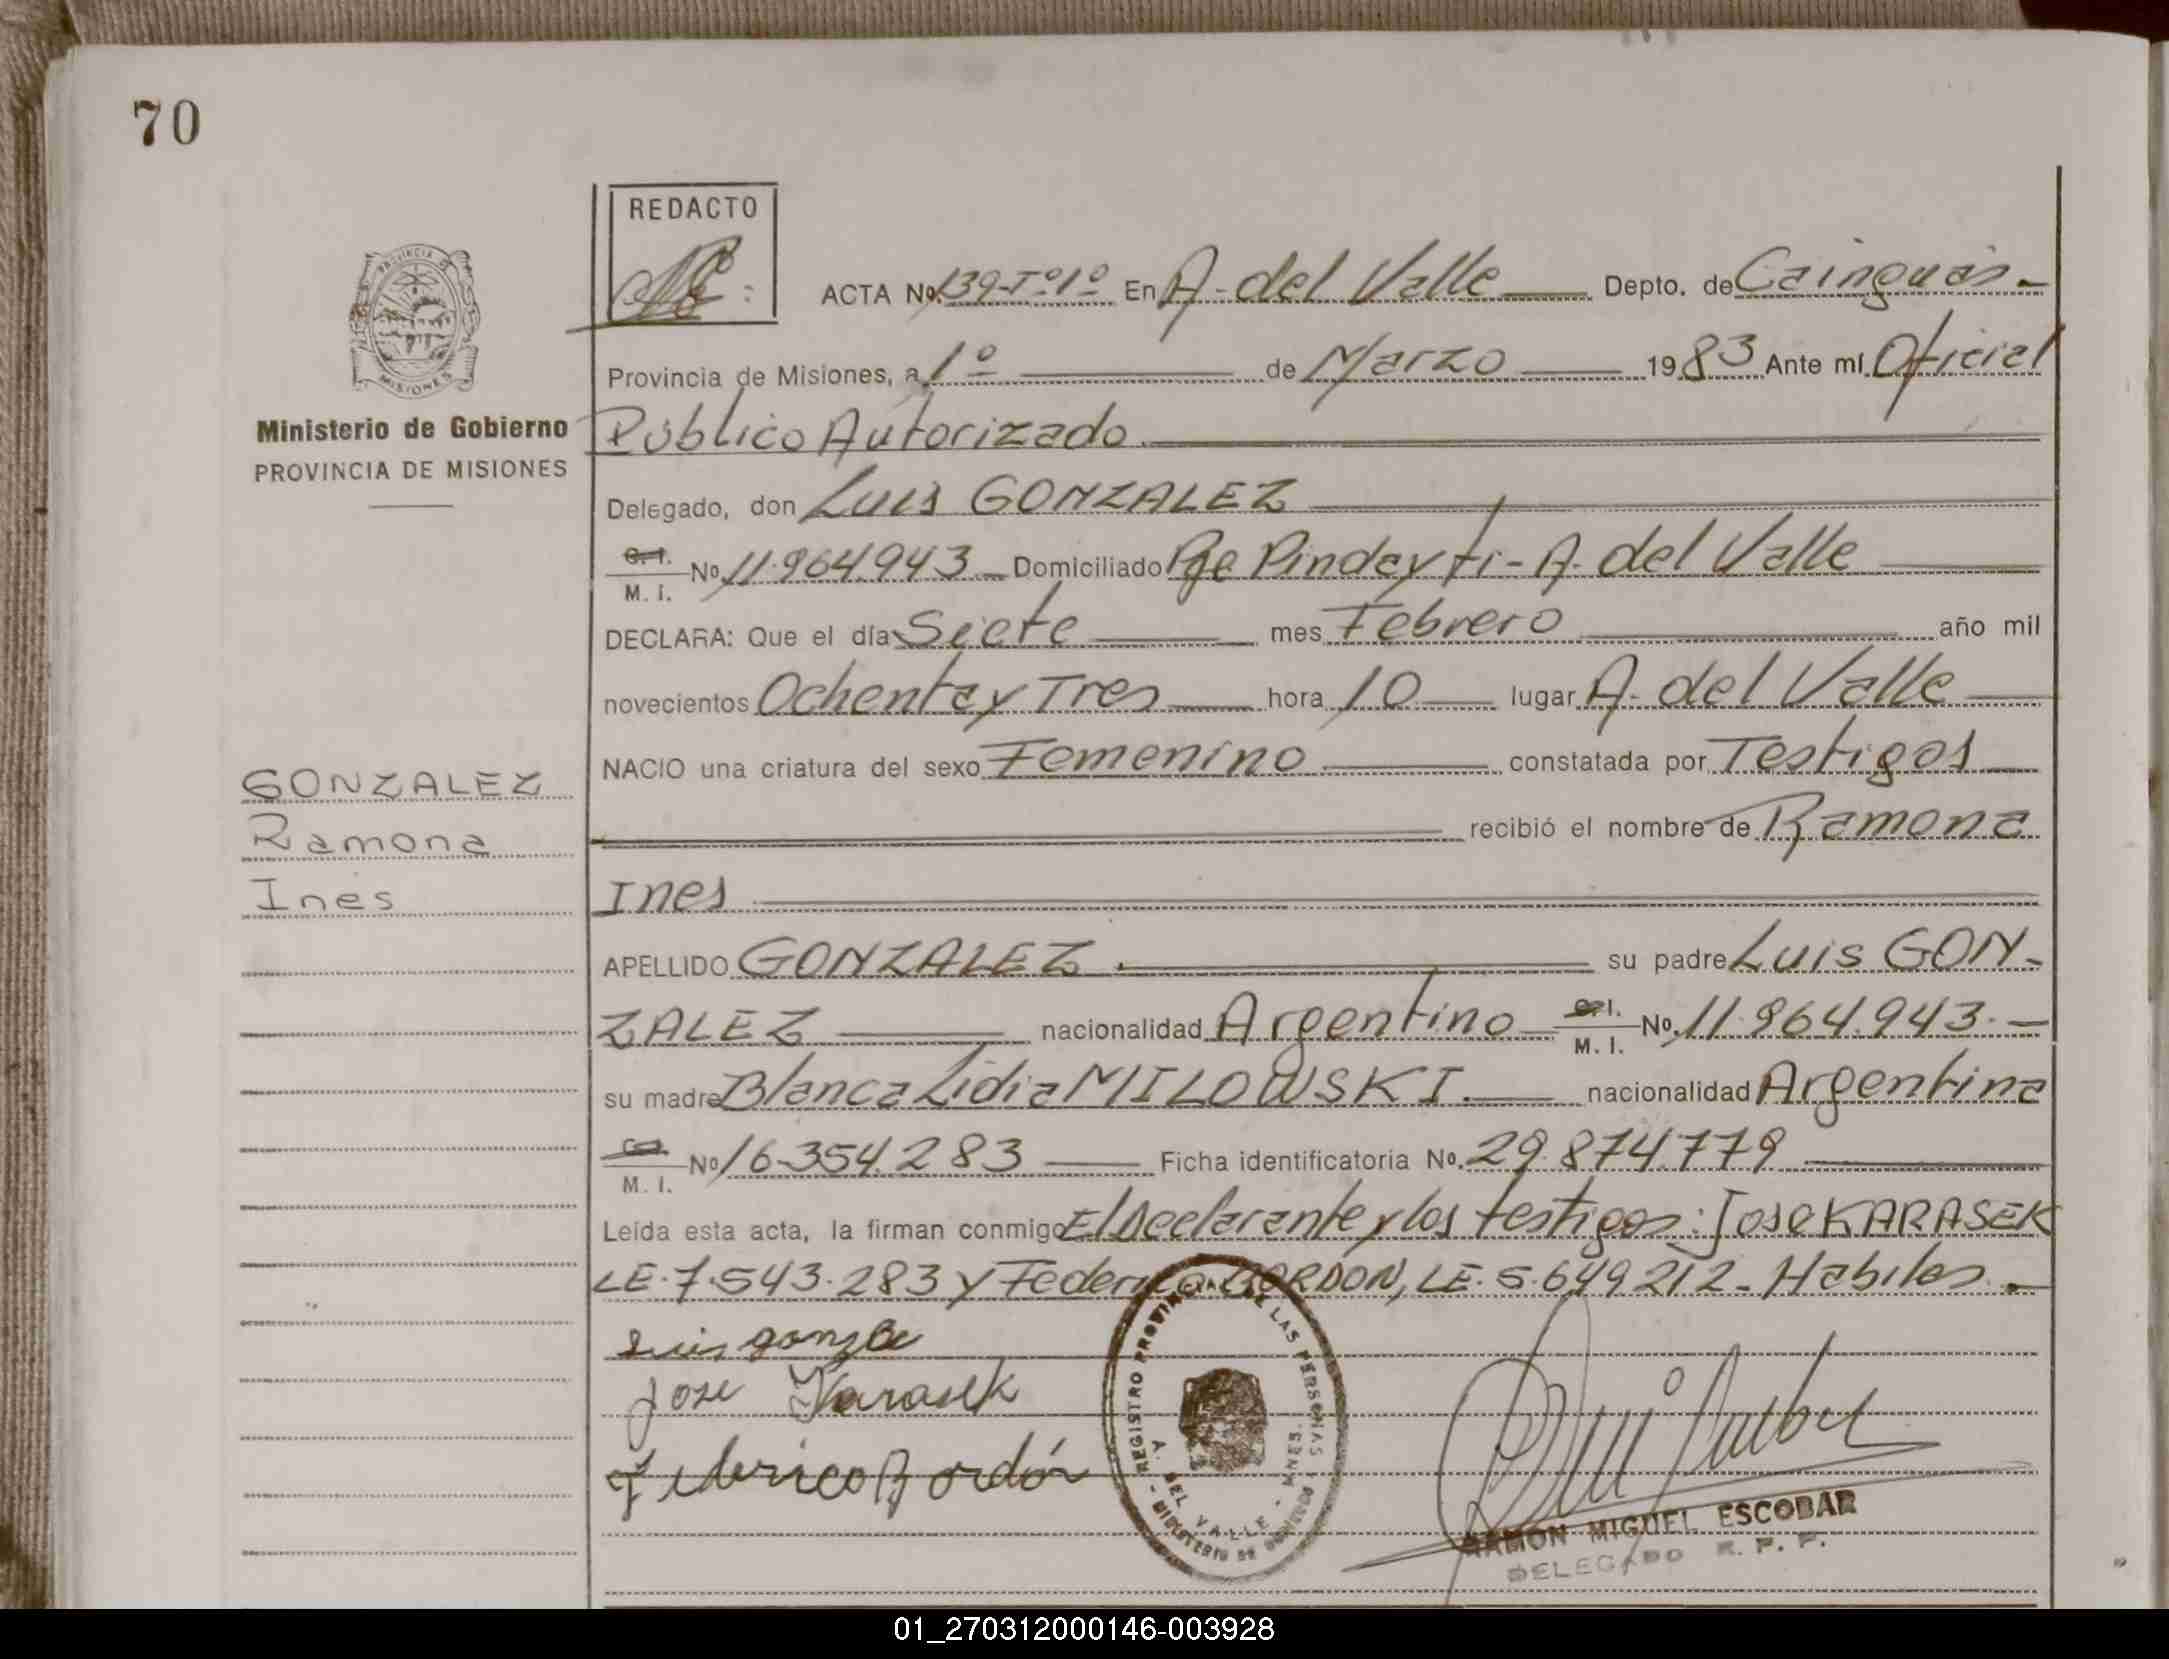 70
REDACTO
PROVINCIA DE
MISIONES
ACTA No. 139-Tº1º En A. del Valle Depto. de Cainguás.-
Provincia de Misiones, a 1º de Marzo 1983 Ante mí Oficial
Ministerio de Gobierno
PROVINCIA DE MISIONES
Público Autorizado
Delegado, don Luis GONZALEZ
C. I. M. I. No 11.964.943 Domiciliado Pje Pindayti - A. del Valle
DECLARA: Que el día Siete mes Febrero año mil
novecientos Ochenta y Tres hora 10 lugar A. del Valle
NACIO una criatura del sexo Femenino constatada por Testigos
GONZALEZ
Ramona
Ines
recibió el nombre de Ramona
Ines
APELLIDO GONZALEZ. su padre Luis GON-
ZALEZ nacionalidad Argentino C. I. M. I. No. 11.964.943.-
su madre Blanca Lidia MILOWSKI. nacionalidad Argentina
M. I. No 16.354.283 Ficha identificatoria No. 29.874.779
Leída esta acta, la firman conmigo El Declarante y los testigos: Jose KARASEK
LE. 7.543.283 y Federico BORDON, LE. 5.649.212- Habiles.-
Luis Gonzale
Jose Karasek
Federico Bordón
REGISTRO PROVINCIAL DE LAS PERSONAS - MINISTERIO DE GOBIERNO
A. DEL VALLE - MNES.
RAMON MIGUEL ESCOBAR
DELEGADO R. P. P.
01_270312000146-003928